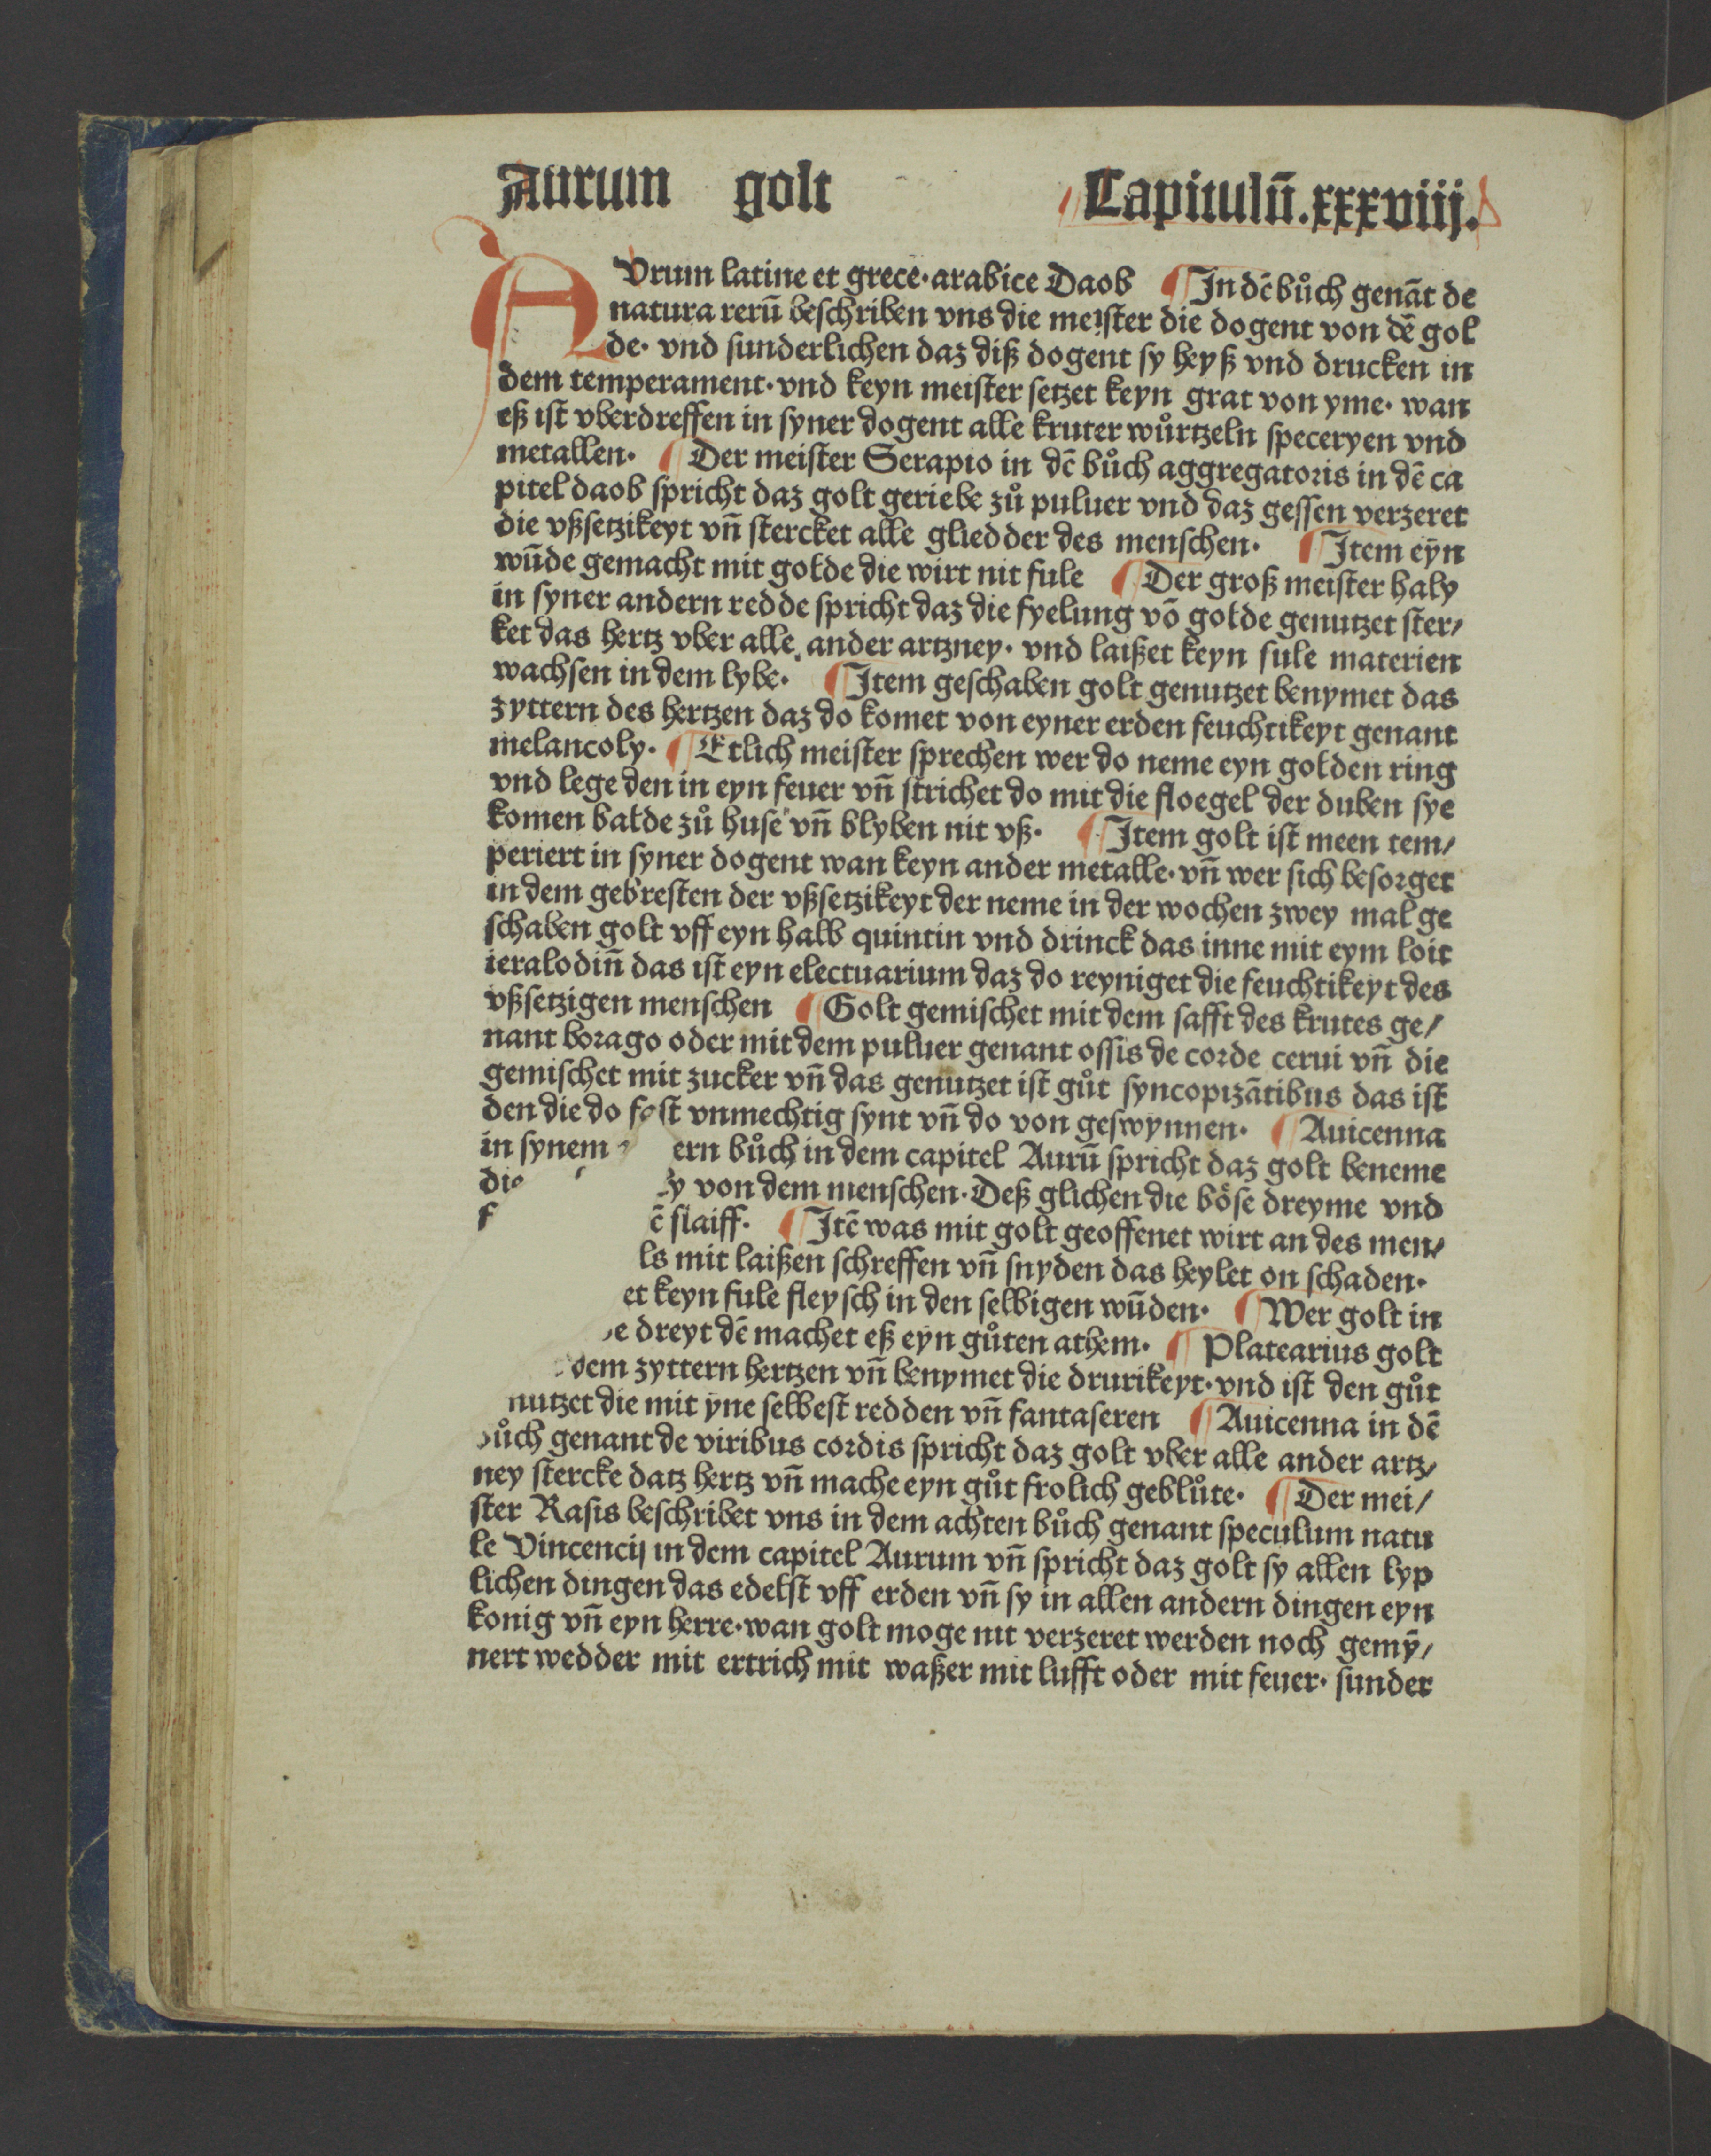 Aurum golt Capitulū.xxxviiij.
AVrum latine et grece·arabice Daob ¶In dē bůch genāt de
natura rerū beschriben vns die meister die dogent von dē gol
de· vnd sunderlichen daz diß dogent sy heyß vnd drucken in
dem temperament·vnd keyn meister setzet keyn grat von yme· wan
eß ist vberdreffen in syner dogent alle kruter wůrtzeln speceryen vnd
metallen· ¶Der meister Serapio in dē bůch aggregatoris in dē ca
pitel daob spricht daz golt geriebe zů puluer vnd daz gessen verzeret
die vßsetzikeyt vn̄ stercket alle gliedder des menschen· ¶Item eyn
wūde gemacht mit golde die wirt nit fule ¶Der groß meister haly
in syner andern redde spricht daz die fyelung vō golde genutzet ster/
ket das hertz vber alle ander artzney· vnd laißet keyn fule materien
wachsen in dem lybe· ¶Item geschaben golt genutzet benymet das
zyttern des hertzen daz do komet von eyner erden feuchtikeyt genant
melancoly· ¶Etlich meister sprechen wer do neme eyn golden ring
vnd lege den in eyn feuer vn̄ strichet do mit die floegel der duben sye
komen balde zů huse vn̄ blyben nit vß· ¶Item golt ist meen tem/
periert in syner dogent wan keyn ander metalle·vn̄ wer sich besorget
in dem gebresten der vßsetzikeyt der neme in der wochen zwey mal ge
schaben golt vff eyn halb quintin vnd drinck das inne mit eym loit
ieralodin̄ das ist eyn electuarium daz do reyniget die feuchtikeyt des
vßsetzigen menschen ¶Golt gemischet mit dem safft des krutes ge/
nant borago oder mit dem puluer genant ossis de corde cerui vn̄ die
gemischet mit zucker vn̄ das genutzet ist gůt syncopizātibus das ist
den die do fast vnmechtig synt vn̄ do von geswynnen· ¶Auicenna
in synem ern bůch in dem capitel Aurū spricht daz golt beneme
die y von dem menschen·Deß glichen die böse dreyme vnd
f ē slaiff· ¶Itē was mit golt geoffenet wirt an des men/
ls mit laißen schreffen vn̄ snyden das heylet on schaden·
et keyn fule fleysch in den selbigen wūden· ¶Wer golt in
e dreyt dē machet eß eyn gůten athem· ¶Platearius golt
dem zyttern hertzen vn̄ benymet die drurikeyt·vnd ist den gůt
nutzet die mit yne selbest redden vn̄ fantaseren ¶Auicenna in dē
bůch genant de viribus cordis spricht daz golt vber alle ander artz/
ney stercke datz hertz vn̄ mache eyn gůt frolich geblůte· ¶Der mei/
ster Rasis beschribet vns in dem achten bůch genant speculum natu
le Vincencij in dem capitel Aurum vn̄ spricht daz golt sy allen lyp
lichen dingen das edelst vff erden vn̄ sy in allen andern dingen eyn
konig vn̄ eyn herre·wan golt moge nit verzeret werden noch gemȳ/
nert wedder mit ertrich mit waßer mit lufft oder mit feuer· sunder